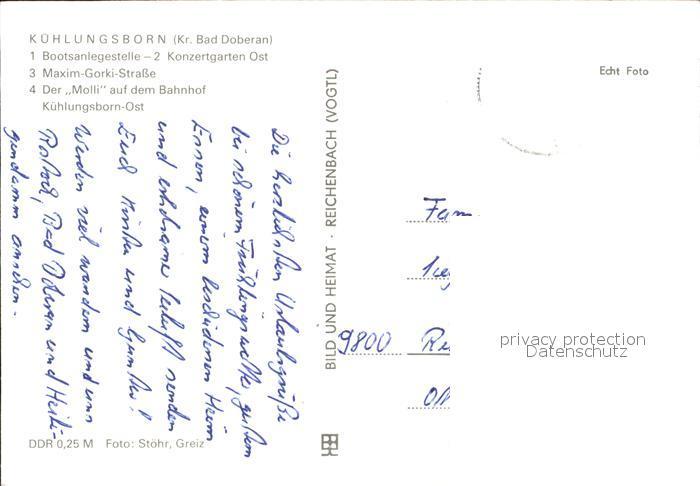 KÜHLUNGSBORN (Kr. Bad Doberan)
1 Bootsanlegestelle – 2 Konzertgarten Ost
3 Maxim-Gorki-Straße
4 Der „Molli" auf dem Bahnhof
Kühlungsborn-Ost
Die herzlichsten Urlaubsgrüße
bei schönem Frühlingswetter, gutem
Essen, einem bescheidenen Heim
und erholsamer Seeluft senden
Euch Krista und Günther!
Werden viel wandern und uns
Rostock, Bad Doberan und Heili-
gendamm ansehen.
DDR 0,25 M Foto: Stöhr, Greiz
BILD UND HEIMAT · REICHENBACH (VOGTL)
Echt Foto
Fam
9800 Re
privacy protection
Datenschutz